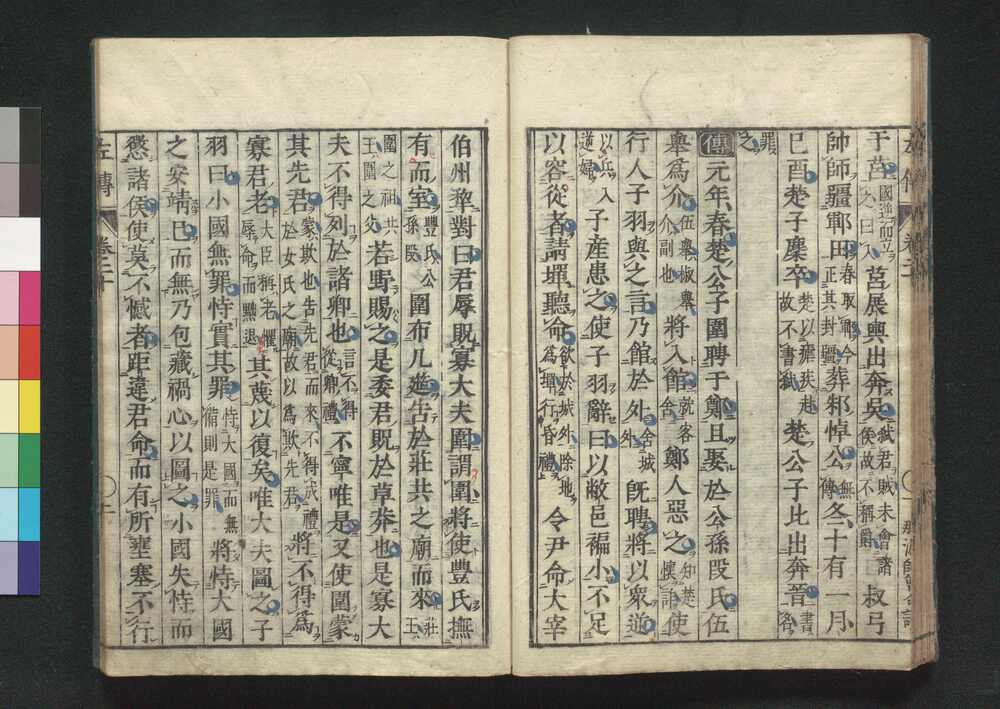 于莒 國逆而立之曰入 莒展輿出奔吳 弑君賊未會諸侯故不稱爵 叔弓
帥師疆鄆田 春取鄆今正其封疆 葬邾悼公 無傳 冬十有一月
巳酉楚子麇卒 楚以瘧疾赴故不書弑 楚公子比出奔晉 書名
罪之
傳元年春楚公子圍聘于鄭且娶於公孫段氏伍
舉爲介 伍舉椒舉介副也 將入館 就客舍 鄭人惡之 知楚懷詐 使
行人子羽與之言乃館於外 舍城外 旣聘將以衆逆
以兵入逆婦 子產患之使子羽辭曰以敝邑褊小不足
以容從者請墠聽命 欲於城外除地爲墠行昏禮 令尹命大宰
伯州犂對曰君辱貺寡大夫圍謂圍將使豐氏撫
有而室 豐氏公孫段 圍布几筵告於莊共之廟而來 莊王
圍之祖共王圍之父 若野賜之是委君貺於草莽也是寡大
夫不得列於諸卿也 言不得從卿禮 不寧唯是又使圍蒙
其先君 蒙欺也告先君而來不得成禮於女氏之廟故以爲欺先君 將不得爲
寡君老 大臣稱老懼辱命而黜退 其蔑以復矣唯大夫圖之子
羽曰小國無罪恃實其罪 恃大國而無備則是罪 將恃大國
之安靖巳而無乃包藏禍心以圖之小國失恃而
懲諸侯使莫不憾者距違君命而有所壅塞不行
左傳 卷二十